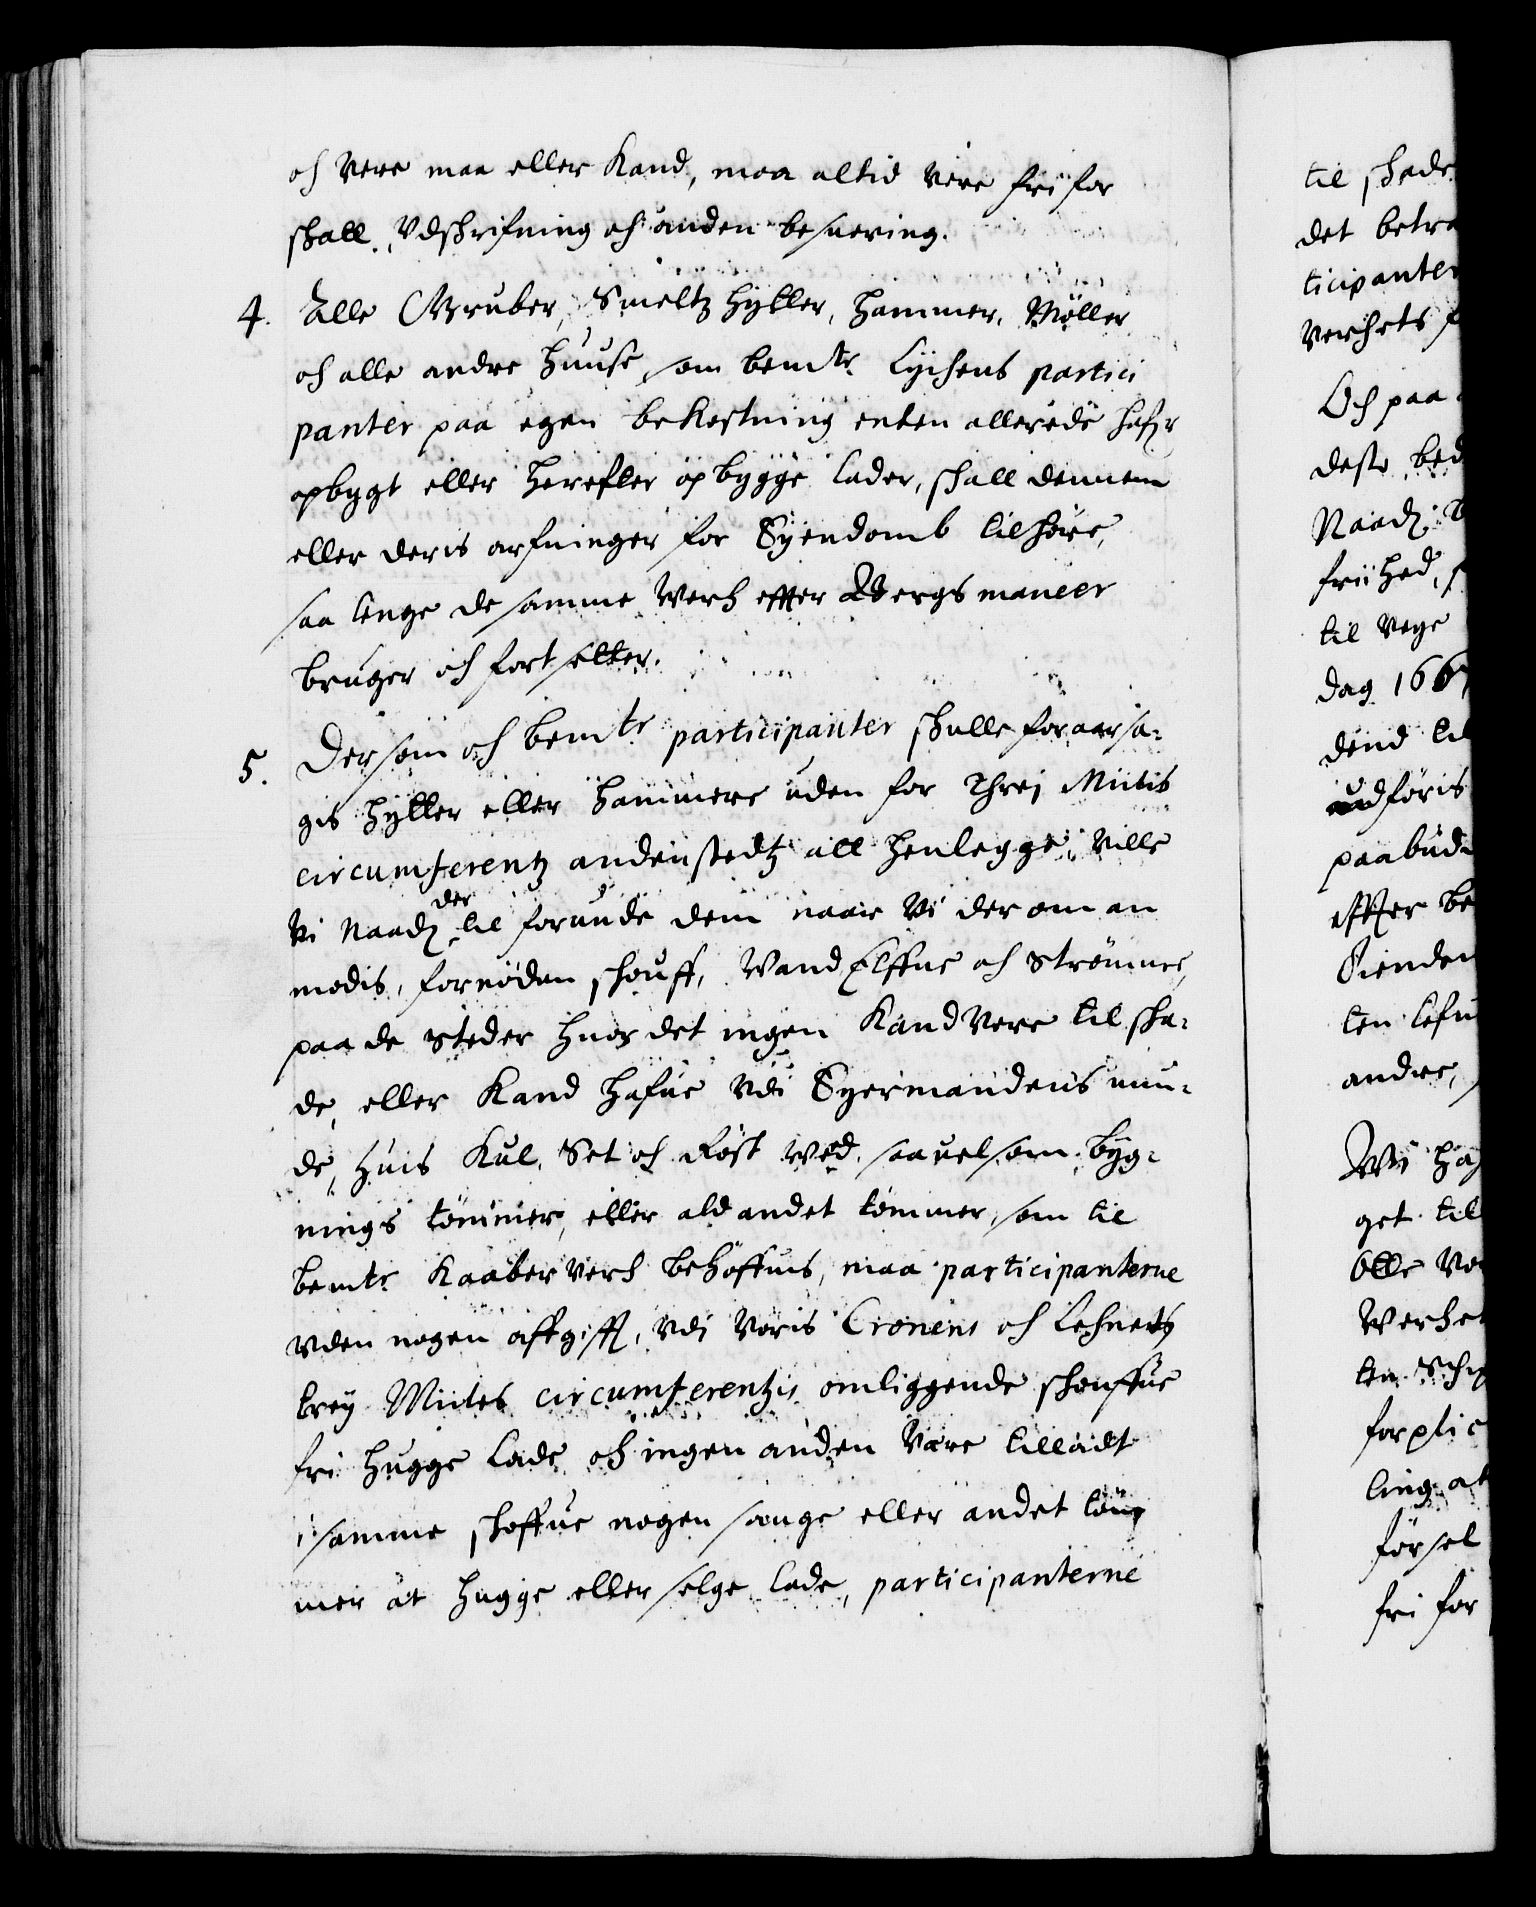 och vere maa eller Kand, maa altid vere fri for
skatt, Vdskrifning och anden besuering.
4. Alle Gruber, Smeltz hytter, Hammer, Møller
och alle andre Huuse, som bemte Lychens partici
panter paa egen bekostning enten allerede hafr
opbygt eller herefter op bygge lader, skall dennem
eller deris arfuinger for Eyendomb tilhøre,
saa lenge de samme Werch effter Bergs maneer
bruger och fortsetter.
5. Dersom och bemte participanter skulle foraarsa-
gis hytter eller hammere uden for Threj Miilis
circumferentz andenstedtz att henlegge, ville
Vi Naadl der til forunde dem naar Vi der om an
modis, fornøden skouff, Wand Elffue och Strømme,
paa de Steder huor det ingen Kand vere til ska-
de, eller Kand hafue Vdi Eyermandens min-
de, huis Kul, Set och Røst Wed, saauelsom byg-
nings tømmer, eller ald andet tømmer, som til
bemte Kaaber verch behøffuis, maa participanterne
vden nogen affgifft, Vdi Voris Cronens och Lehnetz
trey Miiles circumferentzis omliggende skouffue
fri hugge lade och ingen anden Være tilladt
i samme skoffue nogen sauge eller andet tøm
mer at hugge eller selge lade, participanterne
til skade
det betra
ticipanter
Verchets f
Och paa
dess bed
Naadl: 
friihed, 
til veye
dag 166
dend til
udføris
paabud
effter be
Øienden
ten lefu
andre,
Wi haf
get till
Olle Vo
Werchet
ten Schi
forplic
ling at
førsel
fri for